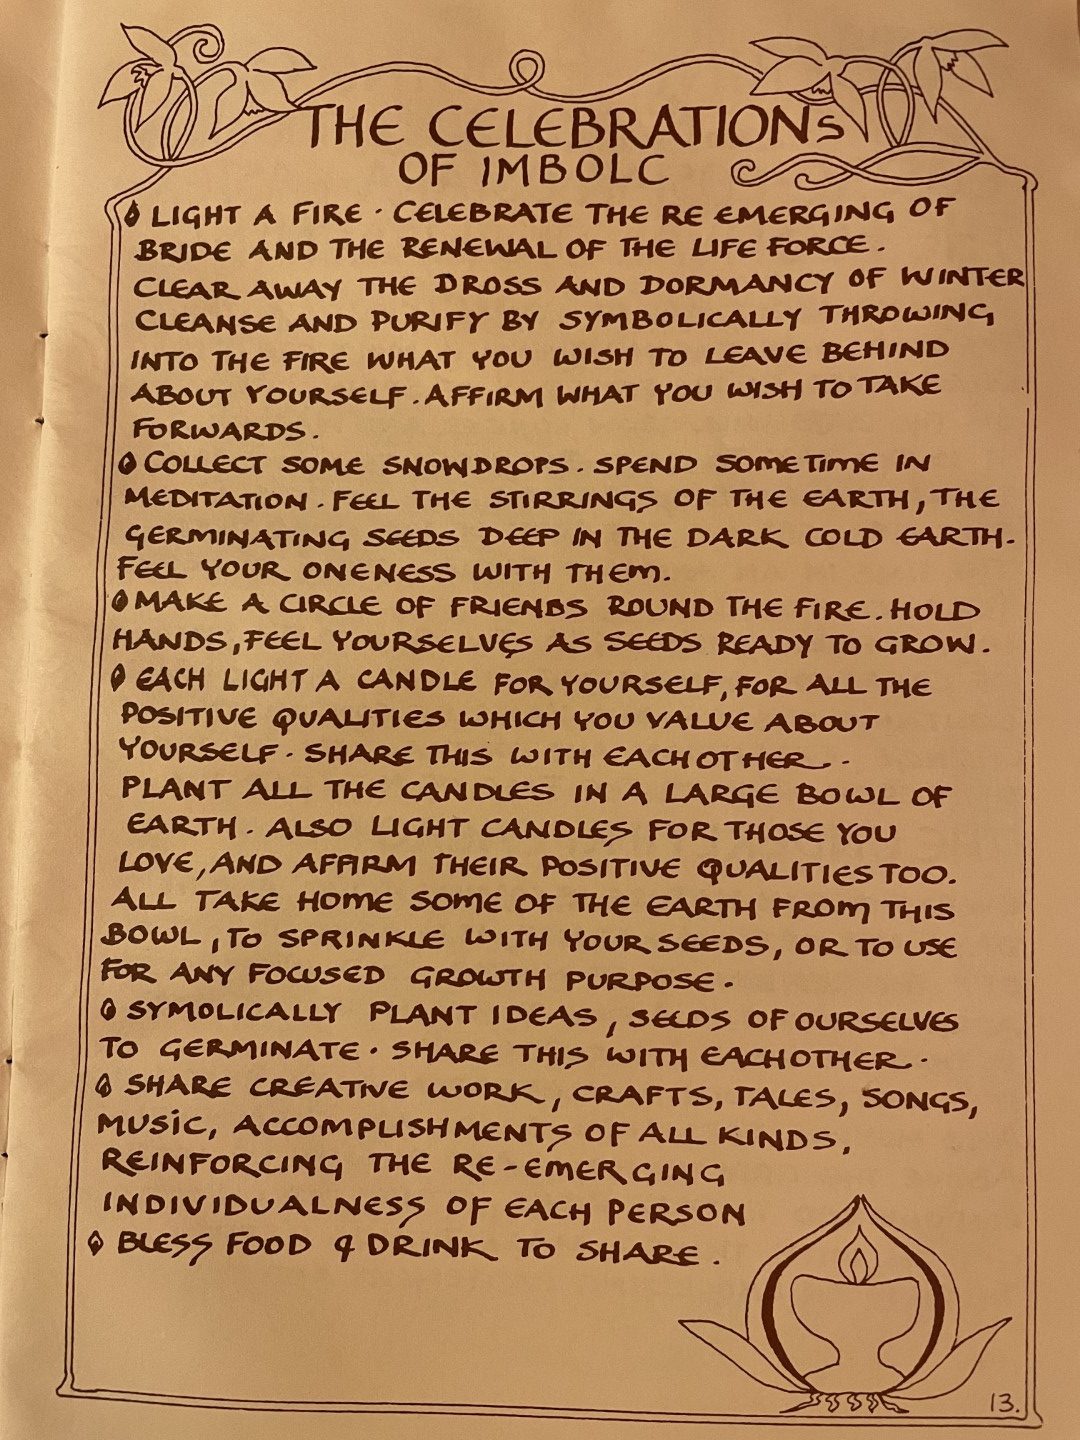 THE CELEBRATIONS
OF IMBOLC
LIGHT A FIRE · CELEBRATE THE RE EMERGING OF
BRIDE AND THE RENEWAL OF THE LIFE FORCE.
CLEAR AWAY THE DROSS AND DORMANCY OF WINTER
CLEANSE AND PURIFY BY SYMBOLICALLY THROWING
INTO THE FIRE WHAT YOU WISH TO LEAVE BEHIND
ABOUT YOURSELF. AFFIRM WHAT YOU WISH TO TAKE
FORWARDS.
COLLECT SOME SNOWDROPS. SPEND SOME TIME IN
MEDITATION. FEEL THE STIRRINGS OF THE EARTH, THE
GERMINATING SEEDS DEEP IN THE DARK COLD EARTH.
FEEL YOUR ONENESS WITH THEM.
MAKE A CIRCLE OF FRIENDS ROUND THE FIRE. HOLD
HANDS, FEEL YOURSELVES AS SEEDS READY TO GROW.
EACH LIGHT A CANDLE FOR YOURSELF, FOR ALL THE
POSITIVE QUALITIES WHICH YOU VALUE ABOUT
YOURSELF · SHARE THIS WITH EACHOTHER.
PLANT ALL THE CANDLES IN A LARGE BOWL OF
EARTH. ALSO LIGHT CANDLES FOR THOSE YOU
LOVE, AND AFFIRM THEIR POSITIVE QUALITIES TOO.
ALL TAKE HOME SOME OF THE EARTH FROM THIS
BOWL, TO SPRINKLE WITH YOUR SEEDS, OR TO USE
FOR ANY FOCUSED GROWTH PURPOSE.
SYMOLICALLY PLANT IDEAS, SEEDS OF OURSELVES
TO GERMINATE · SHARE THIS WITH EACHOTHER.
SHARE CREATIVE WORK, CRAFTS, TALES, SONGS,
MUSIC, ACCOMPLISHMENTS OF ALL KINDS,
REINFORCING THE RE-EMERGING
INDIVIDUALNESS OF EACH PERSON
BLESS FOOD & DRINK TO SHARE.
13.